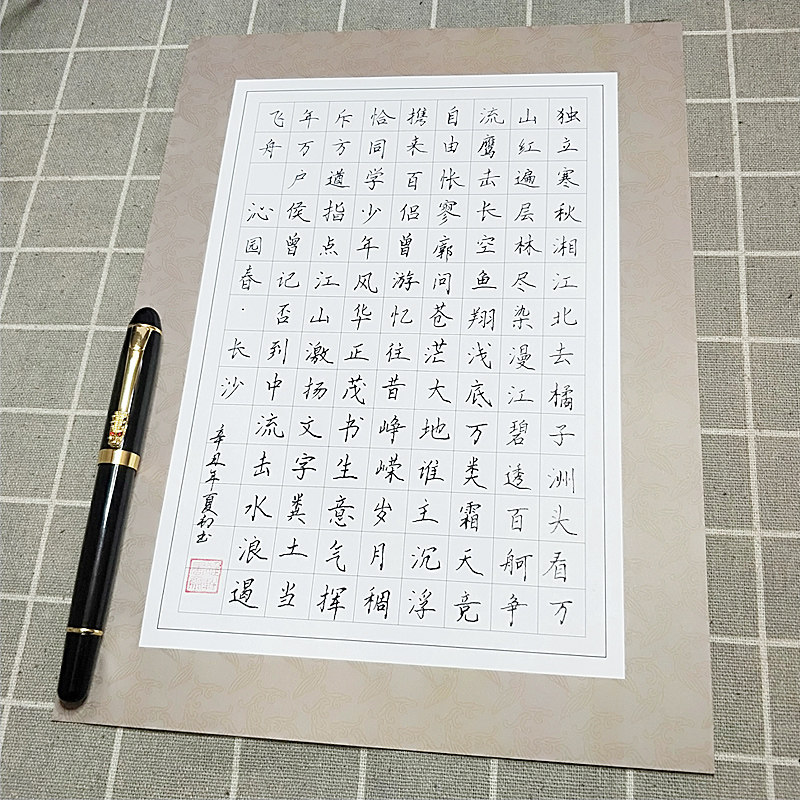 独立寒秋湘江北去橘子洲头看万
山红遍层林尽染漫江碧透百舸争
流鹰击长空鱼翔浅底万类霜天竞
自由怅寥廓问苍茫大地谁主沉浮
携来百侣曾游忆往昔峥嵘岁月稠
恰同学少年风华正茂书生意气挥
斥方遒指点江山激扬文字粪土当
年万户侯曾记否到中流击水浪遏
飞舟 沁园春·长沙
辛丑年夏书